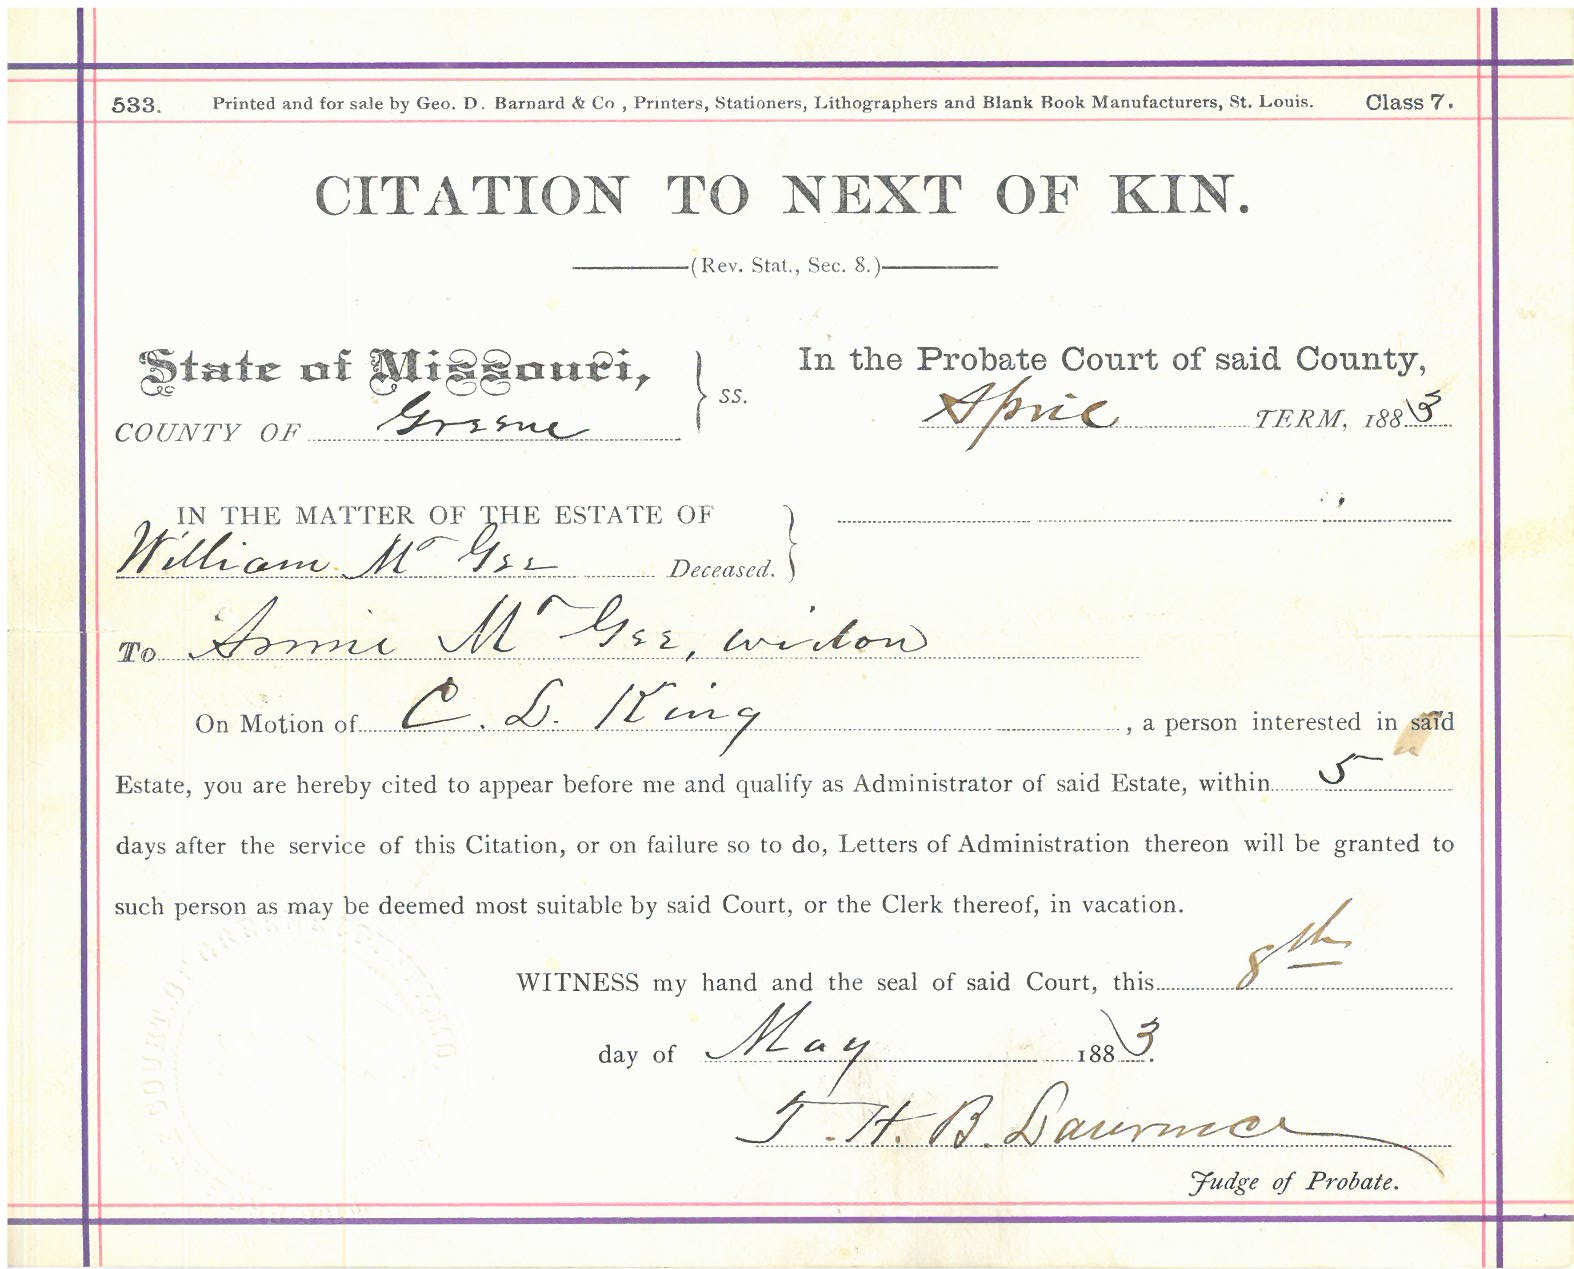 533. Printed and for sale by Geo. D. Barnard & Co , Printers, Stationers, Lithographers and Blank Book Manufacturers, St. Louis. Class 7.
CITATION TO NEXT OF KIN.
(Rev. Stat., Sec. 8.)
State of Missouri, } ss. In the Probate Court of said County,
COUNTY OF Greene April TERM, 1883
IN THE MATTER OF THE ESTATE OF
William Mc Gee Deceased. }
To Annie Mc Gee, widow
On Motion of C. L. King , a person interested in said
Estate, you are hereby cited to appear before me and qualify as Administrator of said Estate, within 5
days after the service of this Citation, or on failure so to do, Letters of Administration thereon will be granted to
such person as may be deemed most suitable by said Court, or the Clerk thereof, in vacation.
WITNESS my hand and the seal of said Court, this 8th
day of May 1883.
T. H. B. Lawrence
Judge of Probate.
COURT OF GREENE COUNTY MO